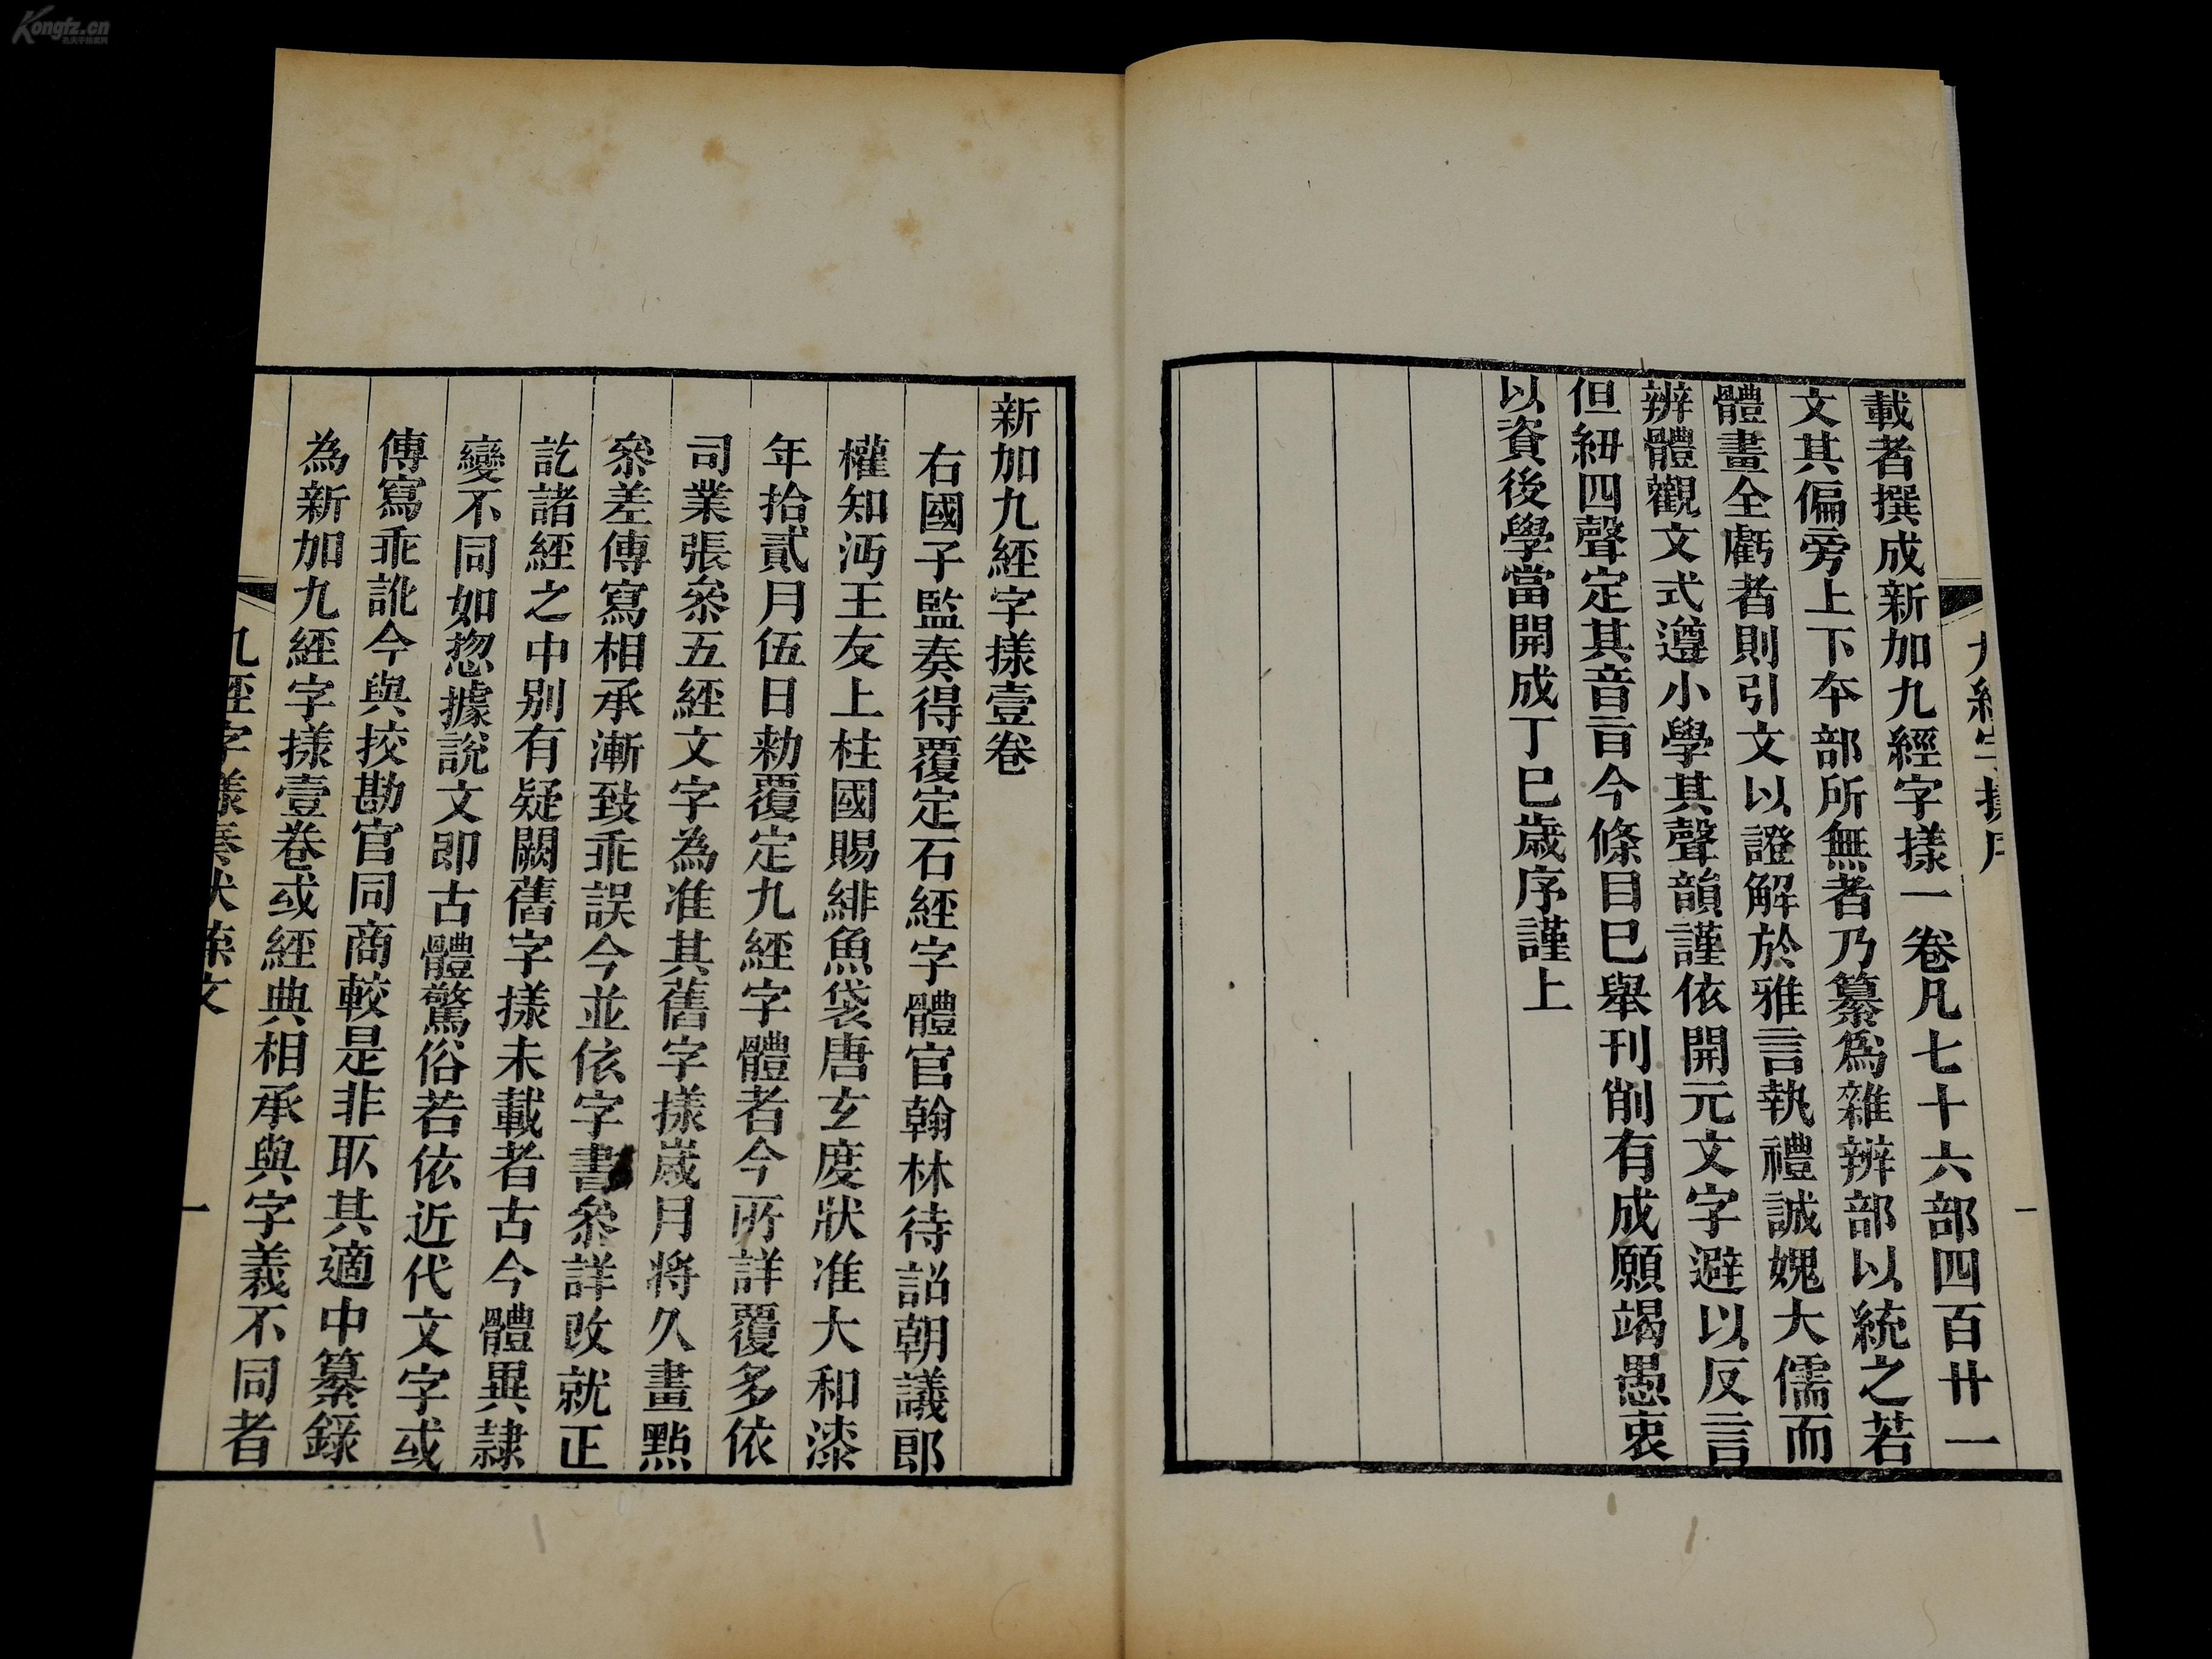 載者撰成新加九經字㨾一卷凡七十六部四百廿一
文其偏旁上下夲部所無者乃纂爲雜辨部以統之若
體畫全虧者則引文以證解於雅言執禮誠媿大儒而
辨體觀文式遵小學其聲韻謹依開元文字避以反言
但紐四聲定其音旨今條目巳舉刊削有成願竭愚衷
以資後學當開成丁巳歲序謹上
新加九經字㨾壹卷
右國子監奏得覆定石經字體官翰林待詔朝議郎
權知沔王友上柱國賜緋魚袋唐玄度狀准大和漆
年拾貳月伍日勑覆定九經字體者今所詳覆多依
司業張叅五經文字為准其舊字㨾歲月將久畫點
叅差傳寫相承漸致乖誤今並依字書叅詳改就正
訖諸經之中別有疑闕舊字㨾未載者古今體異隷
變不同如揔據說文即古體驚俗若依近代文字或
傳寫乖訛今與挍勘官同商較是非取其適中纂錄
為新加九經字㨾壹卷或經典相承與字義不同者
一
Kongfz.cn